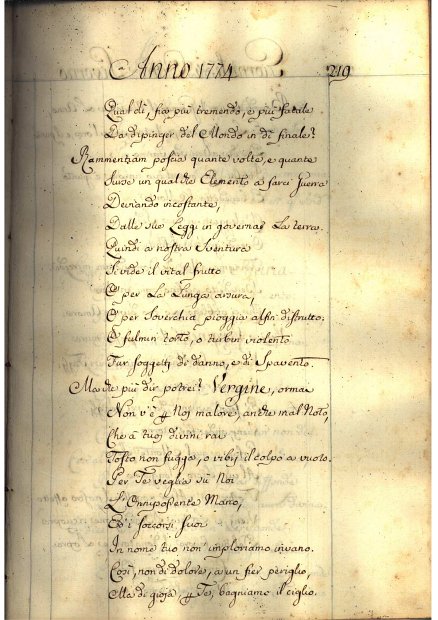 Anno 1774
219
Qual di, fia più tremendo, e più fatale
Da dipinger del Mondo in di finale?
Rammentiam poscia quante volte, e quante
Surse un qualche Elemento a farci Guerra
Deviando incostante,
Dalle sue Leggi in governar La terra.
Quindi a nostra Sventura
Si vide il vital frutto
E per La Lunga arsura,
E per Soverchia pioggia alfin distrutto;
E fulmin torto, o turbin violento
Fur soggetti di danno, e di Spavento.
Ma che più dir potrei? Vergine, ormai
Non v'è p Noi malore, anche mal Noto,
Che a tuoj divini rai
Tosto non fugga, o vibrj il colpo a vuoto.
Per Te veglia sù Noi
L'Onnipossente Mano,
Ed i soccorsi suoi
In nome tuo non imploriamo invano.
Così, non di dolore, a un fier periglio,
Ma di gioja p Te, bagniamo il ciglio.